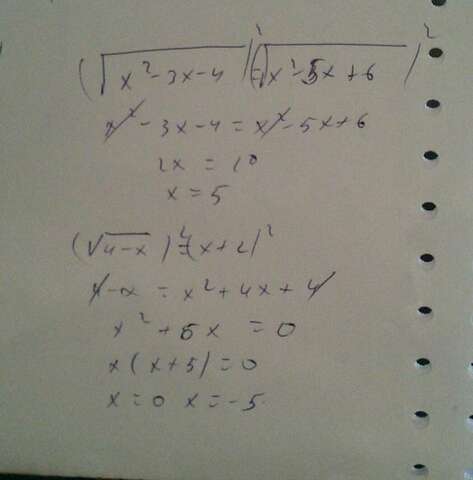 (√x²-3x-4)² = (√x²-5x+6)²
x²-3x-4 = x²-5x+6
2x = 10
x = 5
(√4-x)² = (x+2)²
4-x = x²+4x+4
x²+5x = 0
x(x+5) = 0
x = 0 x = -5